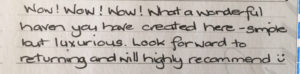 Wow! Wow! Wow! What a wonderful
haven you have created here - simple
but luxurious. Look forward to
returning and will highly recommend ☺